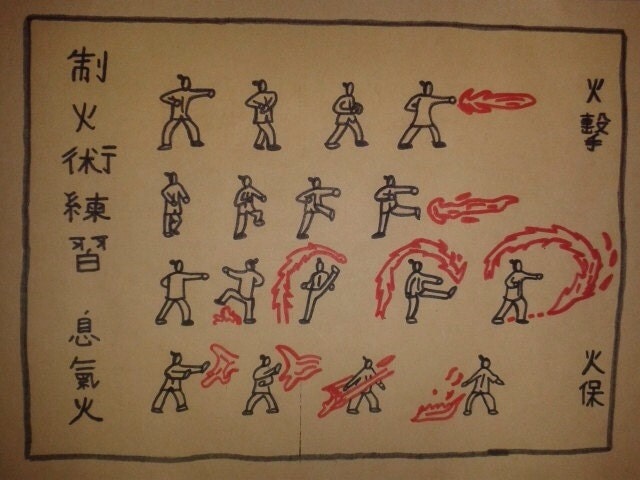 火擊
火保
制火術練習 息氣火